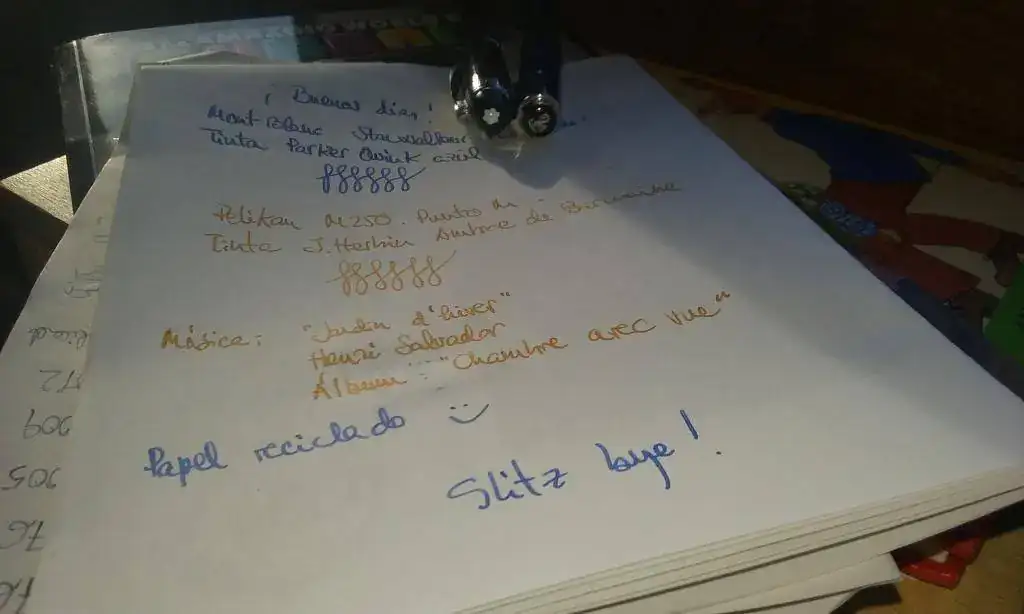 ¡ Buenos días!
Mont-Blanc Starwalker
Tinta Parker Quink azul
Pelikan M250. Punto M
Tinta J. Herbin Ambre de Birmanie
Música: "Jardin d'hiver"
Henri Salvador
Álbum: "Chambre avec vue"
Papel reciclado
Slitz bye!
209
205